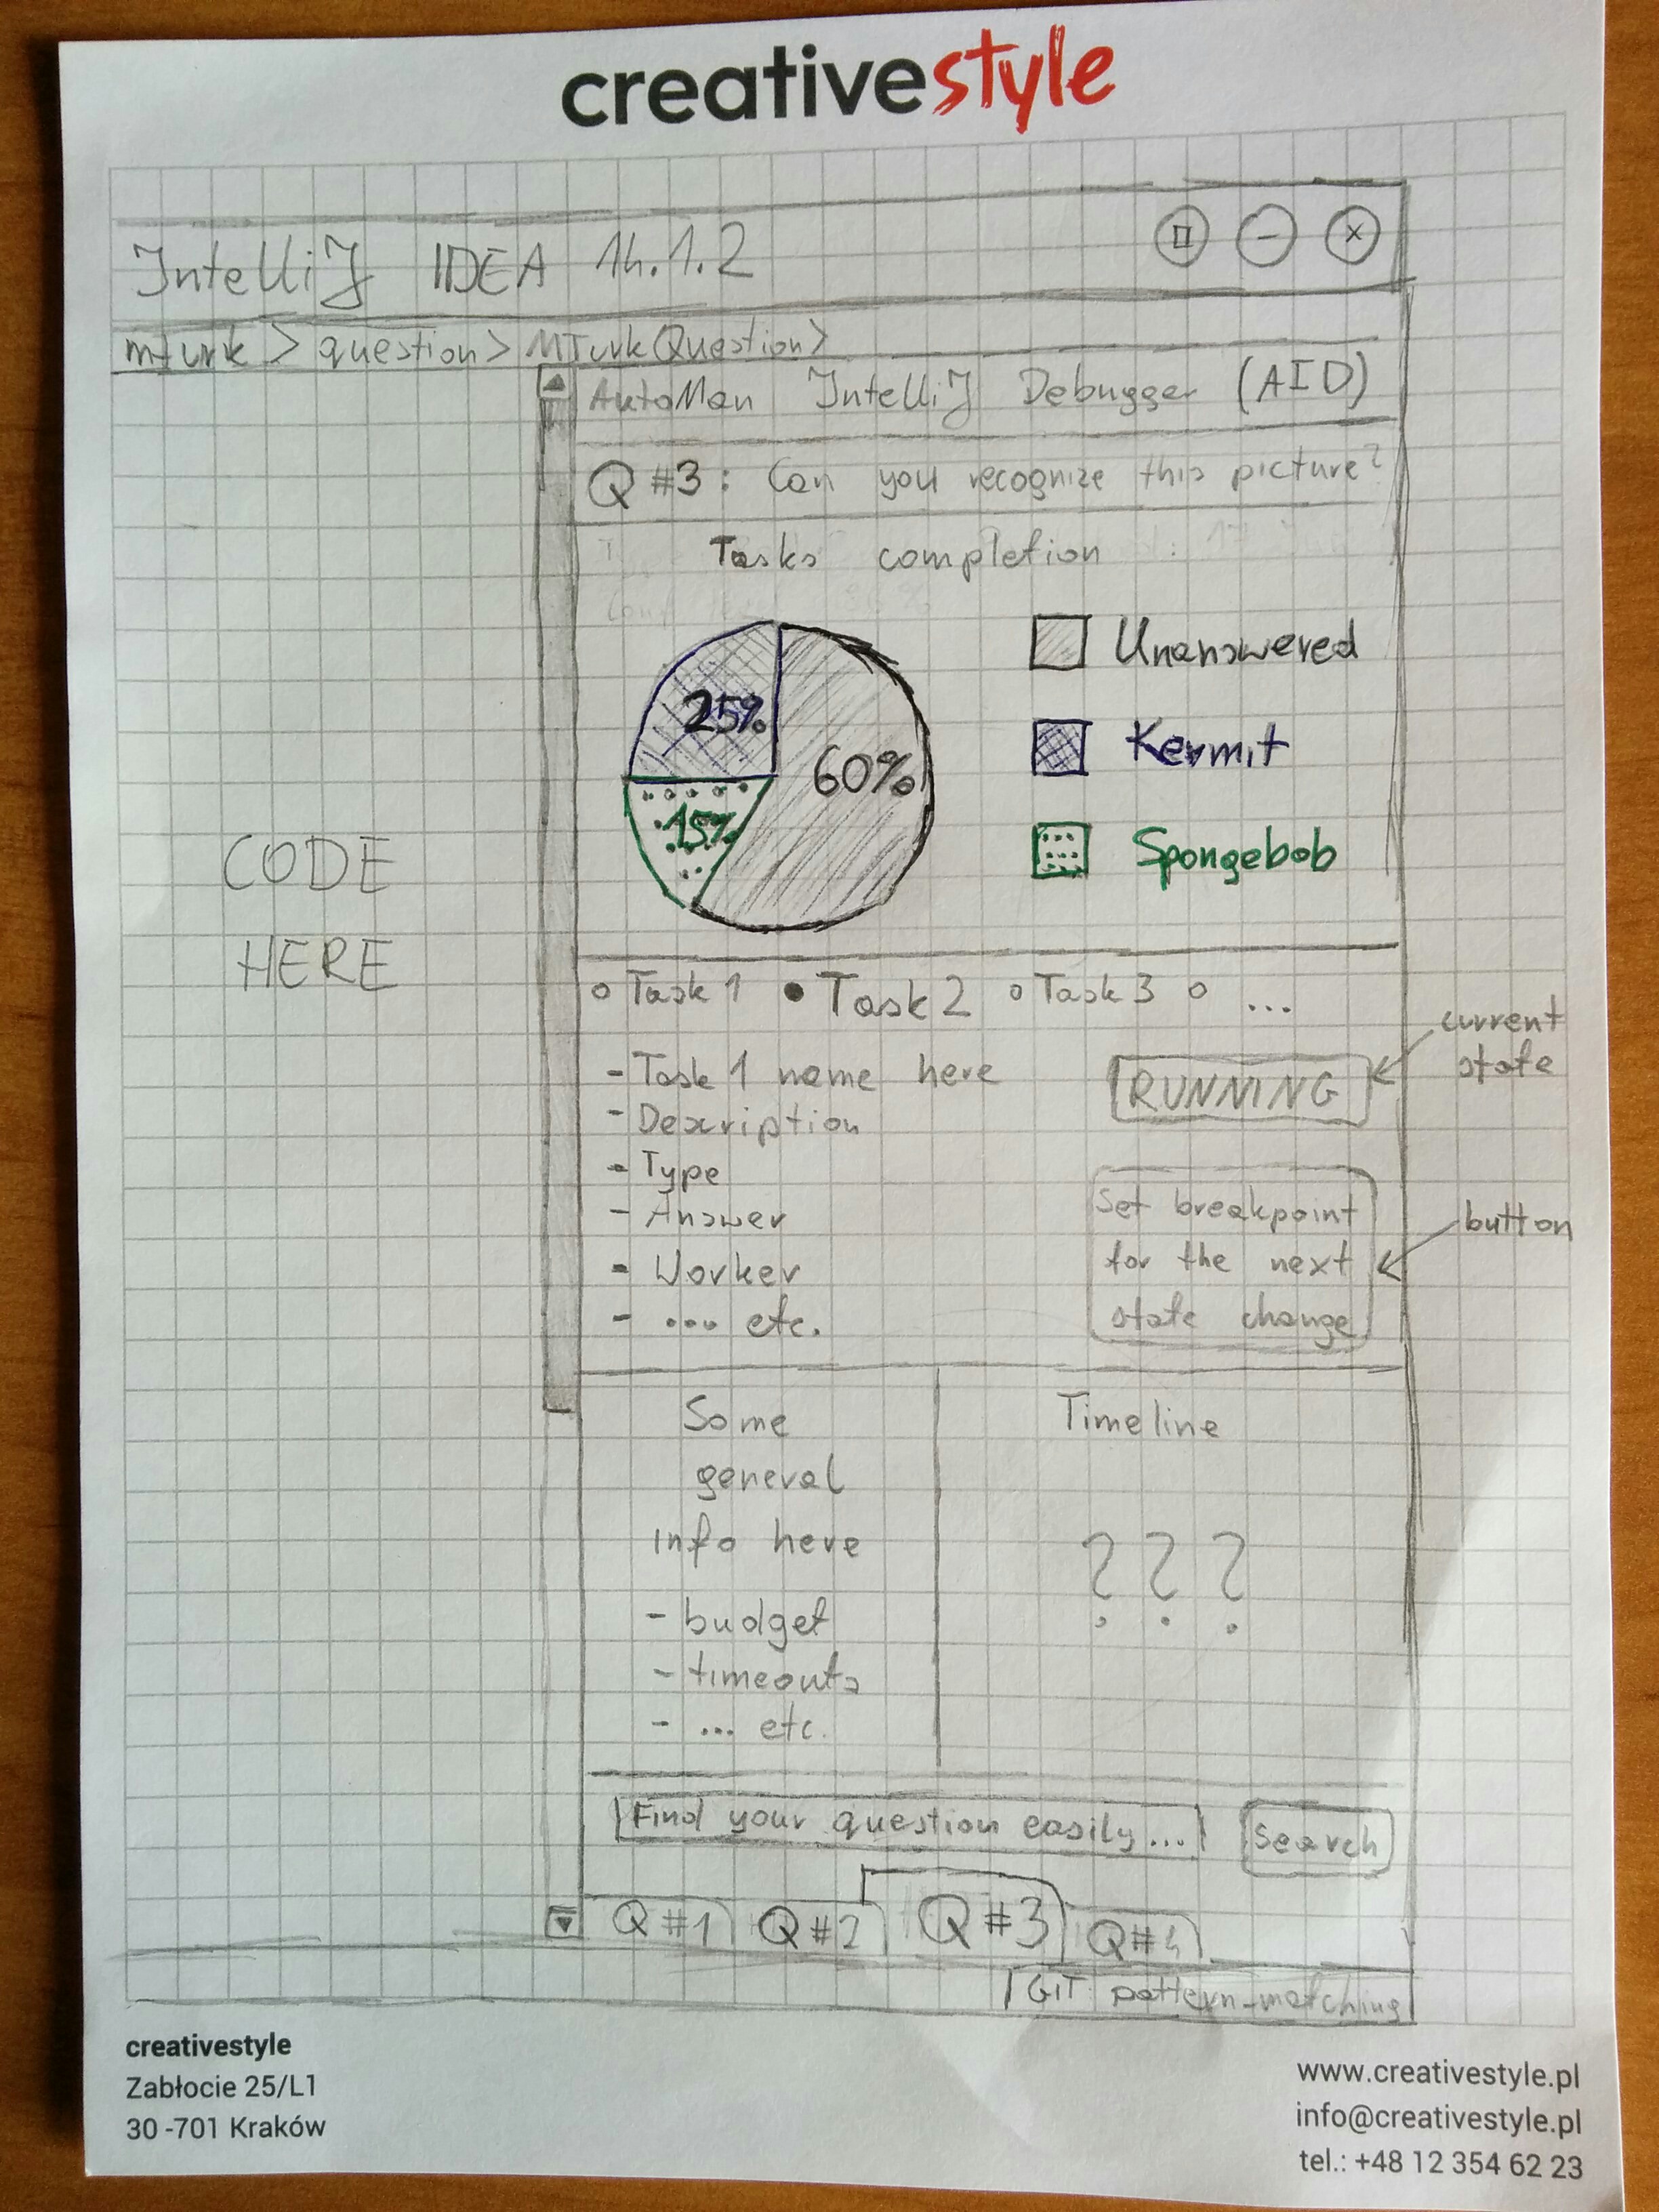 creativestyle
IntelliJ IDEA 14.1.2
mturk > question > MTurkQuestion >
AutoMan IntelliJ Debugger (AID)
Q #3: Can you recognize this picture?
Tasks completion
Unanswered
25%
Kermit
60%
15%
Spongebob
CODE
HERE
Task 1 Task 2 Task 3 ...
current
state
- Task 1 name here
RUNNING
- Description
- Type
- Answer
- Worker
- ... etc.
Set breakpoint
for the next
state change
button
Some
general
info here
- budget
- timeouts
- ... etc.
Timeline
???
Find your question easily...
Search
Q #1 Q #2 Q #3 Q #4
GIT: pattern-matching
creativestyle
Zabłocie 25/L1
30 -701 Kraków
www.creativestyle.pl
info@creativestyle.pl
tel.: +48 12 354 62 23